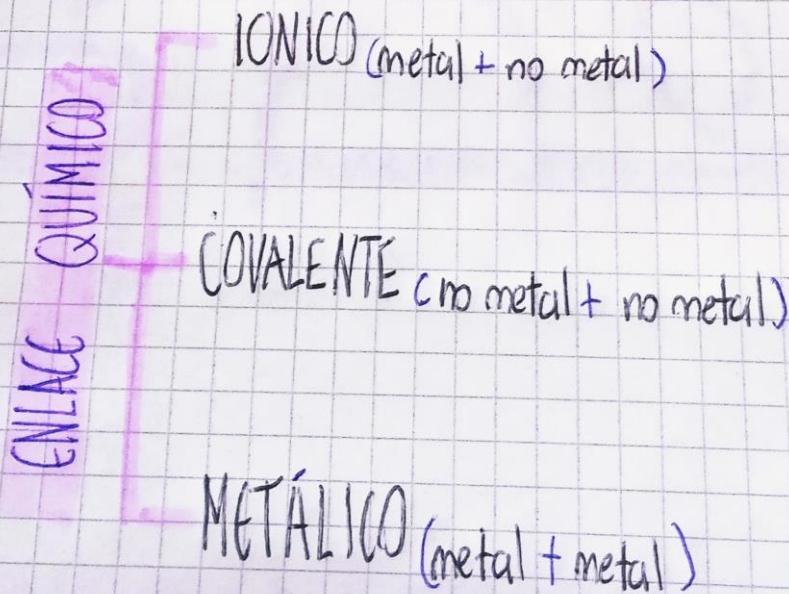 ENLACE QUÍMICO
IONICO (metal + no metal)
COVALENTE (no metal + no metal)
METÁLICO (metal + metal)